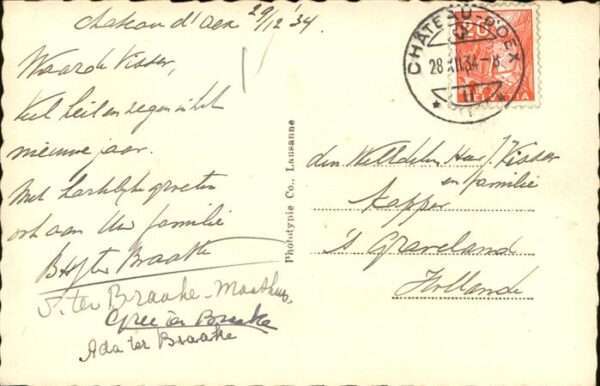 Chateau d'Oex 29/12 '34
Waarde Visser,
Veel heil en zegen in het
nieuwe jaar.
Met hartelijke groeten
ook aan Uw familie
ter Braake
ter Braake-
ter Braake
Ada ter Braake
Phototypie Co., Lausanne
CHÂTEAU-D'OEX
28.XII.34-8
20
den Weledelen Heer J Visser
en familie
kapper
's Graveland
Hollande